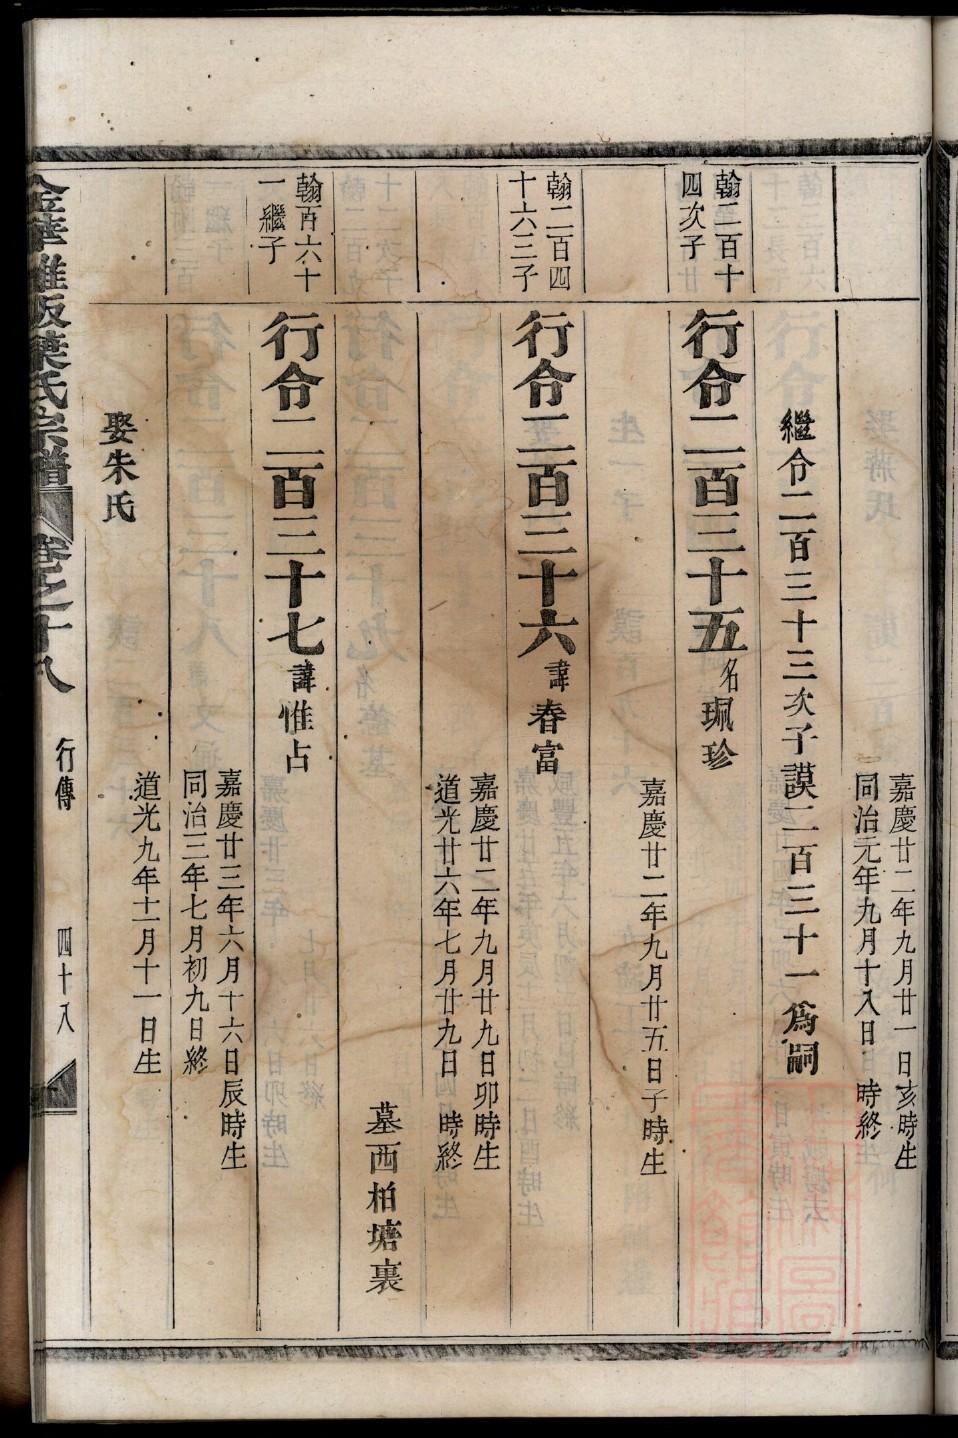 嘉慶廿二年九月廿一日亥時生
同治元年九月十八日　時終
繼令二百三十三次子謨二百三十一爲嗣
翰二百十
四次子
行令二百三十五名珮珍
嘉慶廿二年九月廿五日子時生
翰二百四
十六三子
行令二百三十六諱春富
嘉慶廿二年九月廿九日卯時生
道光廿六年七月廿九日　時終
墓西柏塘裏
翰百六十
一繼子
行令二百三十七諱惟占
嘉慶廿三年六月十六日辰時生
同治三年七月初九日終
娶朱氏
道光九年十二月十一日生
葉氏宗譜
卷之十八
行傳
四十八